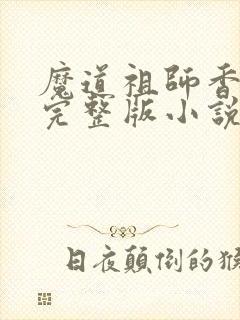 魔道祖師香
完整版小說
日夜顛倒的猴